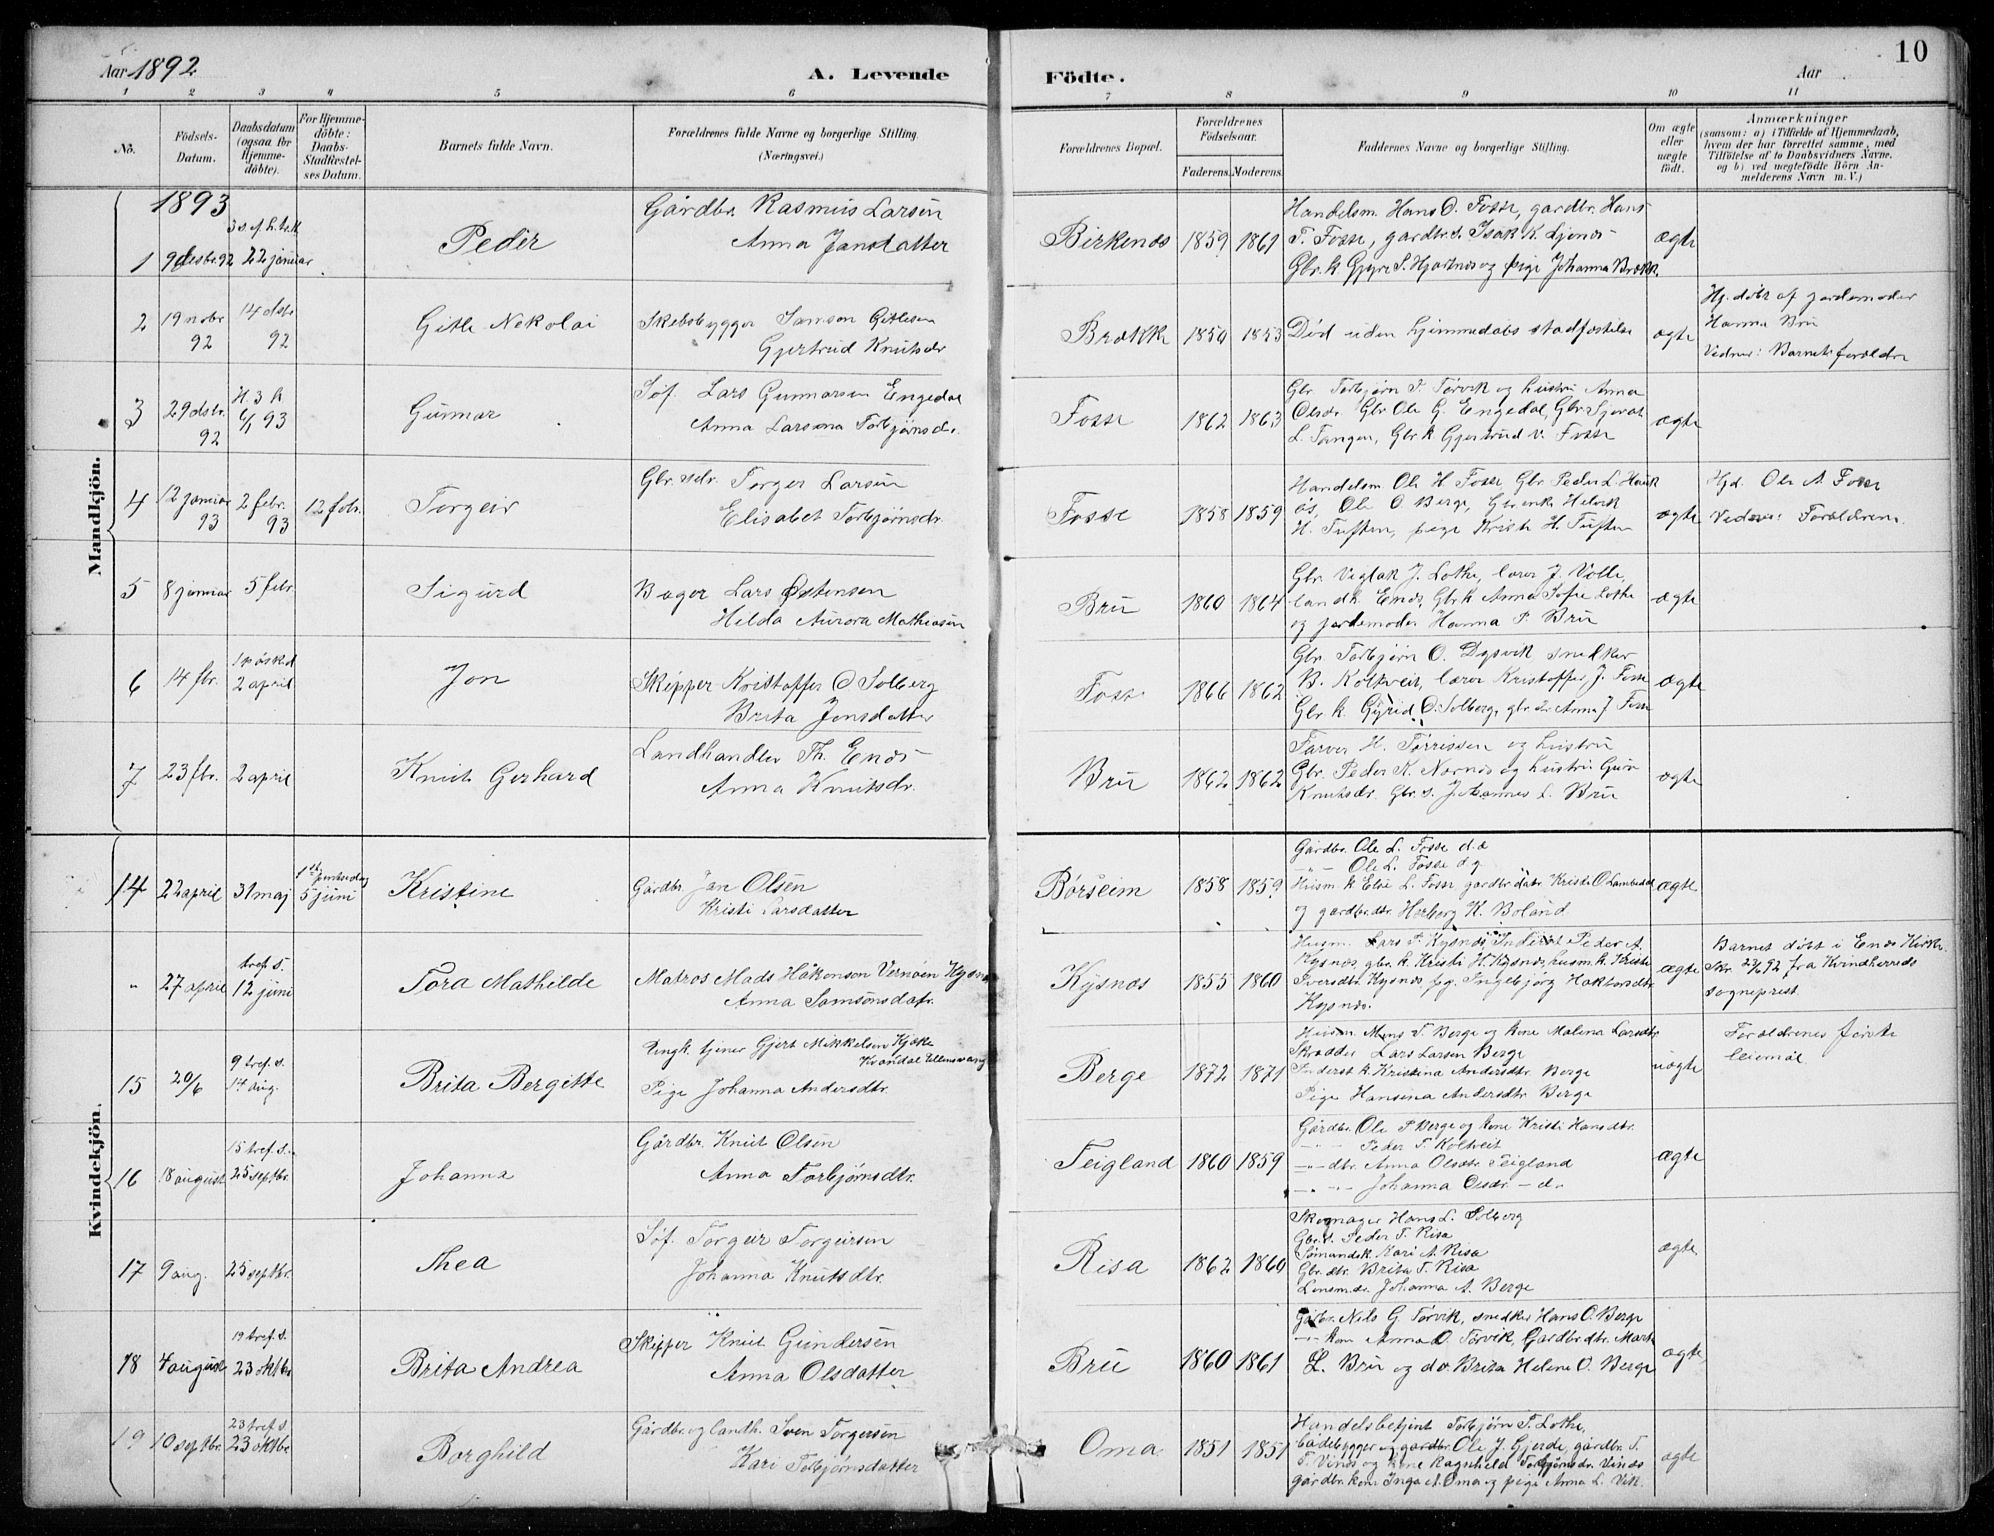 Aar 1892
A. Levende
Födte.
Aar
10
1 2 3 4 5 6 7 8 9 10 11
No.
Födsels-Datum.
Daabsdatum (ogsaa for Hjemme-döbte).
For Hjemme-döbte: Daabs-Stadfæstel-ses Datum.
Barnets fulde Navn.
Forældrenes fulde Navne og borgerlige Stilling. (Næringsvei.)
Forældrenes Bopæl.
Forældrenes Födselsaar.
Faderens. Moderens.
Faddernes Navne og borgerlige Stilling.
Om ægte eller uægte födt.
Anmærkninger
(saasom: a) i Tilfælde af Hjemmedaab, hvem der har forrettet samme, med Tilföielse af to Daabsvidners Navne, og b) ved uægtefödte Börn An-melderens Navn m. V.)
Mandkjön.
1893
1 9 desbr. 92 22 januar Peder
Gårdbr. Rasmus Larsen
Anna Jansdatter
Birkenes 1859 1861
Handelsm. Hans O. Fosse, gardbr. Hans
T. Fosse, gardbr.s. Isak K. Ljones
Gbr. k Gyri S. Hjortnes og pige Johanna Brekk.
ægte
2 19 nobr 92 14 dsbr 92 Gitle Nekolai
Skibsbygger Samson Gitlesen
Gjertrud Knutsdr
Brækk 1850 1853
Død uden hjemmedåbs stadfæstilse
ægte
Hj. døbt af jordemoder
Hanna Bru
Vidner: Barnets forældre
3 29 dsbr. 92 H. 3 k 6/1 93 Gunnar
Søf. Lars Gunnarsen Engedal
Anna Larsina Torbjørnsdr.
Fosse 1862 1863
Gbr Torbjørn T. Tørvik og hustru Anna
Olsdr. Gbr Ole G. Engedal, Gbr Sjurat
L. Tangen, Gbr k Gjertrud V. Fosse
ægte
4 12 januar 93 2 febr. 93 12 febr. Torgeir
Torger Larsen
Elisabet Torbjørnsdr.
Fosse 1858 1859
Handelsm Ole H Fosse Gbr Peder L. Heuk
øs, Ole O Berge,
H. Tuften, pige Kristi H. Tuften
ægte
Hjd. Ole A Fosse
Vidner: Forældrene.
5 8 januar 5 febr. Sigurd
Bager Lars Østensen
Hilda Aurora Mathiasen
Bru 1860 1864
Gbr. Viglak J. Lothe, lærer J. Volle,
landh. Enes, Gbr. k Anna Sofie Lothe
og jordemoder Hanna P. Bru
ægte
6 14 fbr. 1 påskd 2 april Jon
Skipper Kristoffer O Solberg
Brita Jonsdatter
Foss 1866 1862
Gbr. Torbjørn O. Dysvik snedker
B. Koltveit, lærer Kristoffer J. Fosse
Gbr k. Gyrid O. Solberg, gbr dr Anna J Fosse
ægte
7 23 fbr. 2 april Knut Gerhard
Landhandler Th. Enes
Anna Knutsdr.
Bru 1862 1862
Farver H. Tørrissen og hustru
Gbr. Peder K. Nornes og hustru Guri
Knutsdr. Gbr. s. Johannes L. Bru
ægte
Kvindekjön.
14 22 april 31 maj 1st pintsedag 5 juni Kristine
Gårdbr. Jan Olsen
Kristi Larsdatter
Børseim 1858 1859
Gårdbr. Ole L. Fosse d.æ
-"- Ole L. Fosse d.y
Husm. k Elsi L. Fosse gardbr. datr Kristi O Lambedal
og gardbr.dtr. Herborg K. Boland
ægte
" 27 april tref. s. 12 juni Tora Mathilde
Matros Mads Håkonson Vernøen Kysnes
Anna Samsonsdatr.
Kysnes 1855 1860
Husm. Lars P. Kysnes, Inderst Peder A.
Kysnes, gbr. k. Kristi H. Kysnes, husm. k. Kristi
Iversdtr. Kysnes, pg. Ingebjørg Haktorsdtr
Kysnes.
ægte
Barnet døbt i Enes Kirke.
Skr. 27/6 92 fra Kvindherreds
sogneprest.
15 20/6 9 tref. s. 14 aug. Brita Bergitte
Ungk. tjener Gjert Mikkelsen Kjøkle
Kvandal Ullensvang
Pige Johanna Andersdtr.
Berge 1872 1871
Husm. Mons T. Berge og kone Malena Larsdtr
Skrædder Lars Larsen Berge
Inderst k. Kristina Andersdtr. Berge
Pige Hansina Andersdtr Berge
uægte
Forældrenes første
leiermål
16 18 august 15 tref. s. 25 septbr. Johanna
Gårdbr. Knut Olsen
Anna Torbjørnsdtr.
Teigland 1860 1859
Gårdbr Ole P Berge og kone Kristi Hansdtr.
-"- Peder T. Koltveit
-"- dtr. Anna Olsdtr. Teigland
-"- -"- Johanna Olsdr. - d.
ægte
17 9 aug. 25 septbr. Thea
Søf. Torgeir Torgeirsen
Johanna Knutsdtr.
Risa 1862 1860
Skomager Hans L. Solberg
Gbr. s. Peder T. Risa
Sømandsk. Kari A. Risa
Gbr. dtr. Brita T. Risa
Lensm. dr. Johanna A. Berge
ægte
18 4 august 19 tref. s. 23 oktbr Brita Andrea
Skipper Knut Gundersen
Anna Olsdatter
Bru 1860 1861
Gårbr. Nils G Tørvik, snedker Hans O. Berge
-"- kone Anna O. Tørvik, Gardbr. dtr. Marta
L. Bru og do Brita Helene O. Berge
ægte
19 10 septbr. 23 tref. s. 23 oktbr Borghild
Gårdbr. og landh. Sven Torgersen
Kari Torbjørnsdatter
Oma 1851 1851
Handelsbetjent Torbjørn T. Lothe,
bådebygger og gardbr. Ole J. Gjerde, gårdbr. T.
T. Vines og kone Ragnhild Torbjørnsdr. Vines
gårdbr. kone Inga A. Oma og pige Anna L. Vik.
ægte